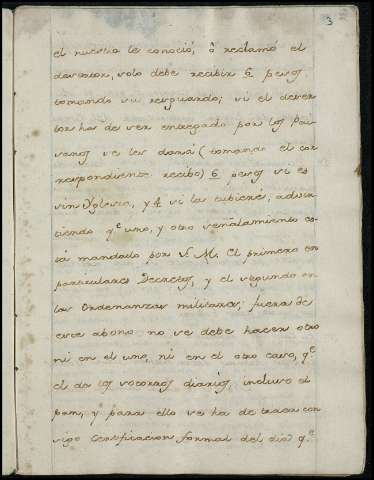 3
el nuestro le conoció, ó reclamó el
desertor, solo debe recibir 6 pesos
tomando su resguardo; si el deser
tor ha de ser entregado por los Pai
sanos se les dará (tomando el cor
respondiente recibo) 6 pesos si es
sin Yglesia, y 4 si la tubiere, advir
tiendo qe uno, y otro señalamiento es
tá mandado por S. M. El primero en
particulares Decretos, y el segundo en
las Ordenanzas militares; fuera de
este abono no se debe hacer otro
ni en el uno, ni en el otro caso, qe
el de los socorros diarios, incluso el
pan, y para ello se ha de traer con
sigo Certificacion formal del dia qe